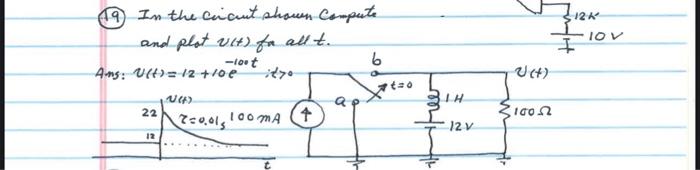 19 In the circuit shown Compute
and plot v(t) for all t.
Ans: v(t) = 12 + 10e^-100t ; t>0
12K
10V
b
v(t)
t=0
a
v(t)
22
τ=0.01s
100mA
1H
100Ω
12
12V
t